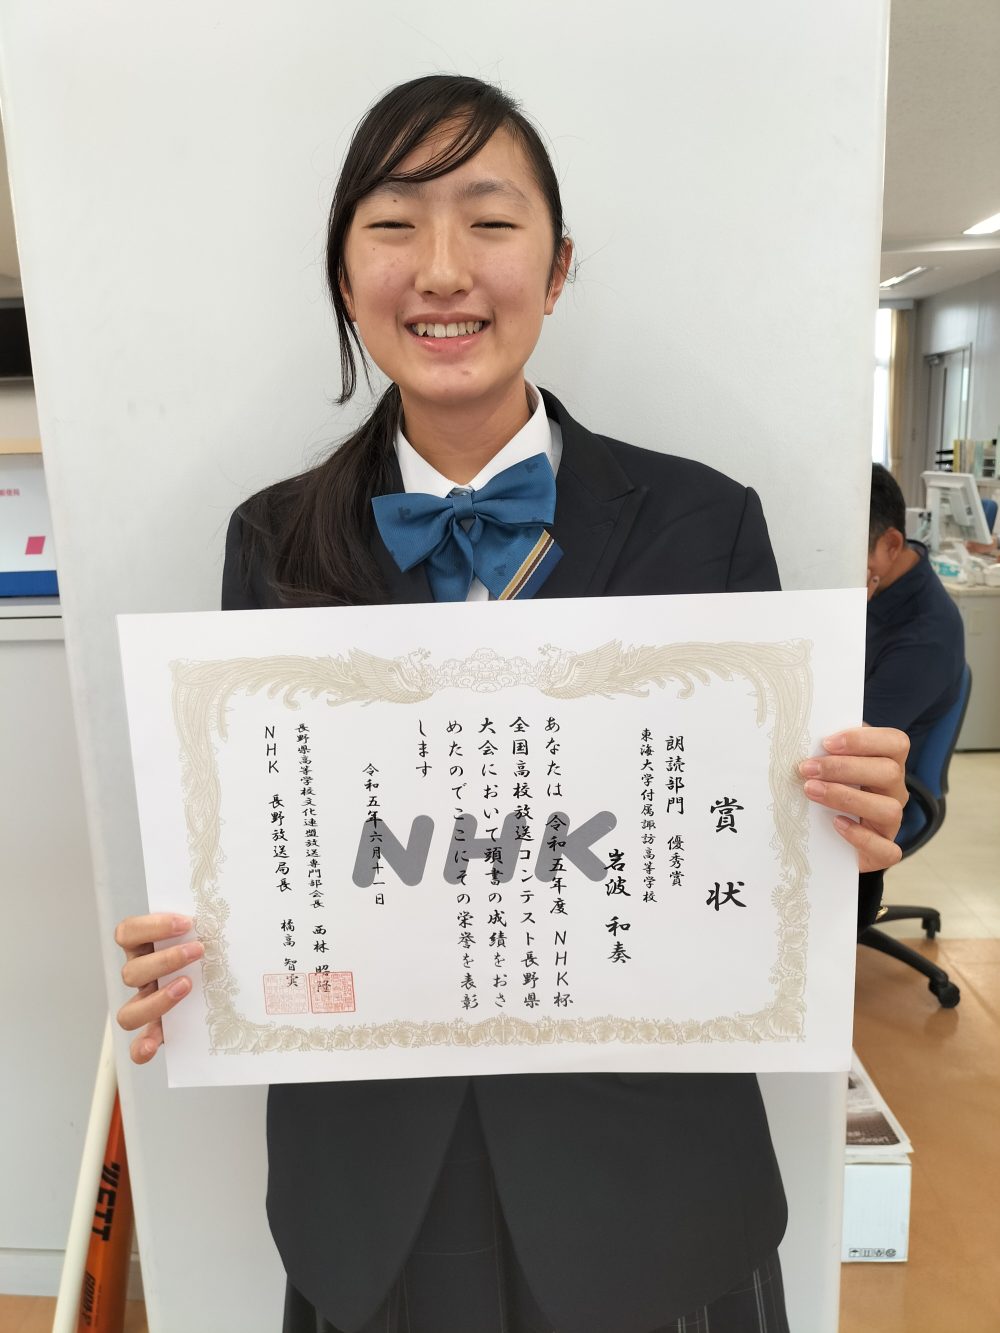 賞状
朗読部門 優秀賞
東海大学付属諏訪高等学校
岩波 和奏
あなたは 令和五年度 NHK杯
全国高校放送コンテスト長野県
大会において頭書の成績をおさ
めたのでここにその栄誉を表彰
します
令和五年六月十一日
長野県高等学校文化連盟放送専門部会長 西林 昭隆
NHK 長野放送局長 橘高 智実
NHK